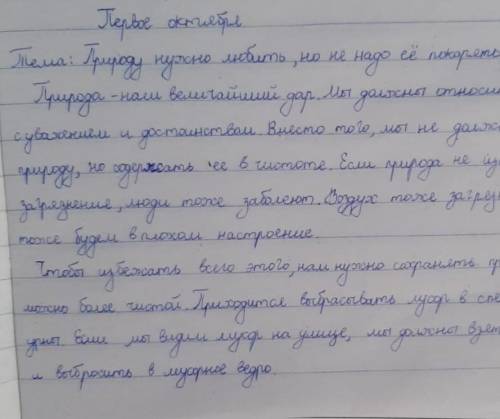 Первое октября
Тема: Природу нужно любить, но не надо её покорять
Природа - наш величайший дар. Мы должны относи
с уважением и достоинствам. Внесто того, мы не долж
природу, но содержать ее в чистоте. Если природа не из
загрязнение, люди тоже заболеют. Воздух тоже загряз
тоже будем в плохом настроение.
Чтобы избежать всего этого, нам нужно сохранять пр
можно более чистой. Приходится выбрасывать мусор в спе
урны. Если мы видим мусор на улице, мы должны взят
и выбросить в мусорное ведро.